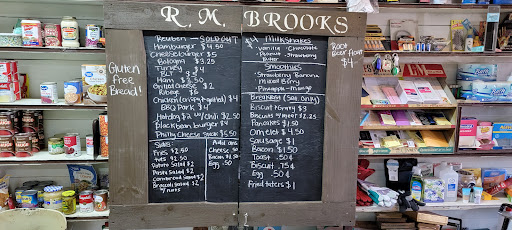 R. M. BROOKS
Reuben - SOLD OUT
Hamburger $4.50
Cheeseburger $5
Bologna $3.25
Turkey $4
BLT
Ham $3.50
Grilled Cheese $2
Ribeye $6
Chicken (crispy/grilled) $4
BBQ Pork $4
Hotdog $2 w/chili $2.50
Blackbean burger $4
Philly Cheese Steak $5.50
SIDES:
Fries $2.50
Potato Salad $2
Pasta Salad $2
Cornbread Salad $2
Broccoli Salad $2
Add ons
Cheese .50
Bacon $1.50
Egg .50
Milkshakes
Vanilla Chocolate
Peanut Butter
Smoothies
Strawberry Banana
Mixed Berry
Pineapple-mango
Breakfast (Sat. Only)
Biscuit + Gravy $3
Biscuits w/meat $2.25
Pancakes $1.50
Omelet $4.50
Sausage $1
Bacon $1.50
Toast .50¢
Biscuit .75¢
Egg .50¢
Fried taters $1
Gluten
Free
Bread!
Root
Beer Float
$4